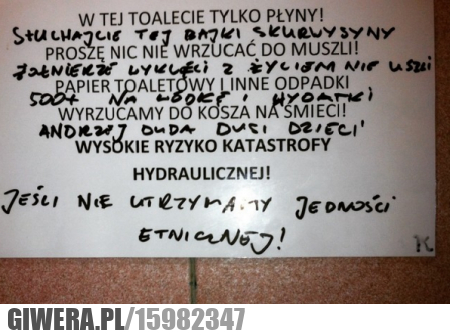 W TEJ TOALECIE TYLKO PŁYNY!
SŁUCHAJCIE TEJ BAJKI SKURWYSYNY
PROSZĘ NIC NIE WRZUCAĆ DO MUSZLI!
ŻOŁNIERZE WYKLĘCI Z ŻYCIEM NIE USZLI
PAPIER TOALETOWY I INNE ODPADKI
500+ NA WÓDKĘ I WYDATKI
WYRZUCAMY DO KOSZA NA ŚMIECI!
ANDRZEJ DUDA DUSI DZIECI
WYSOKIE RYZYKO KATASTROFY
HYDRAULICZNEJ!
JEŚLI NIE UTRZYMAMY JEDNOŚCI
ETNICZNEJ!
GIWERA.PL/15982347